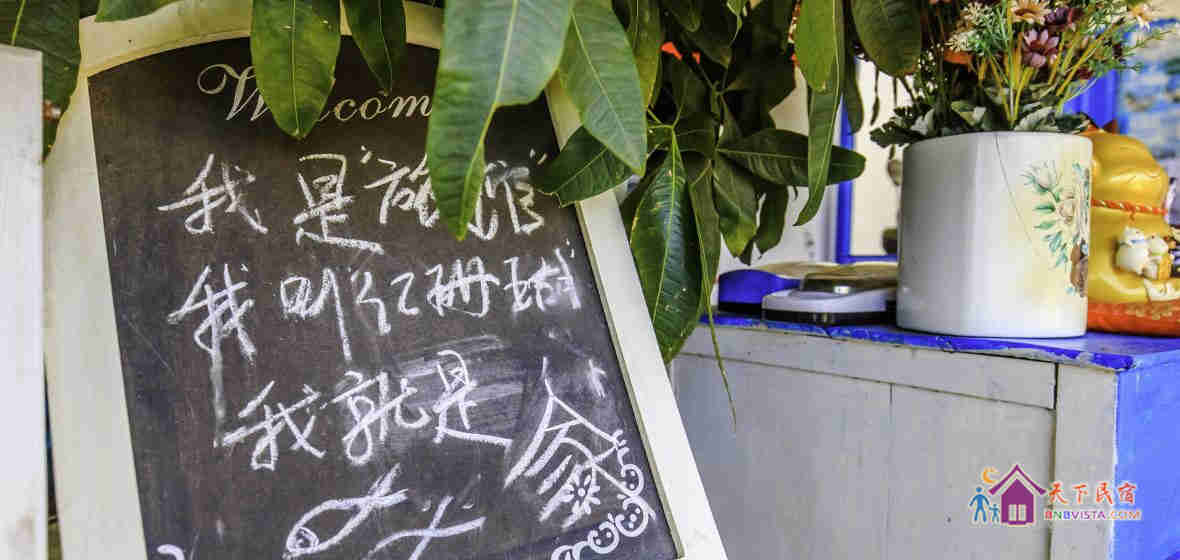 Welcome
我是"旅馆"
我叫红珊瑚
我就是
天下民宿
BNBVISTA.COM